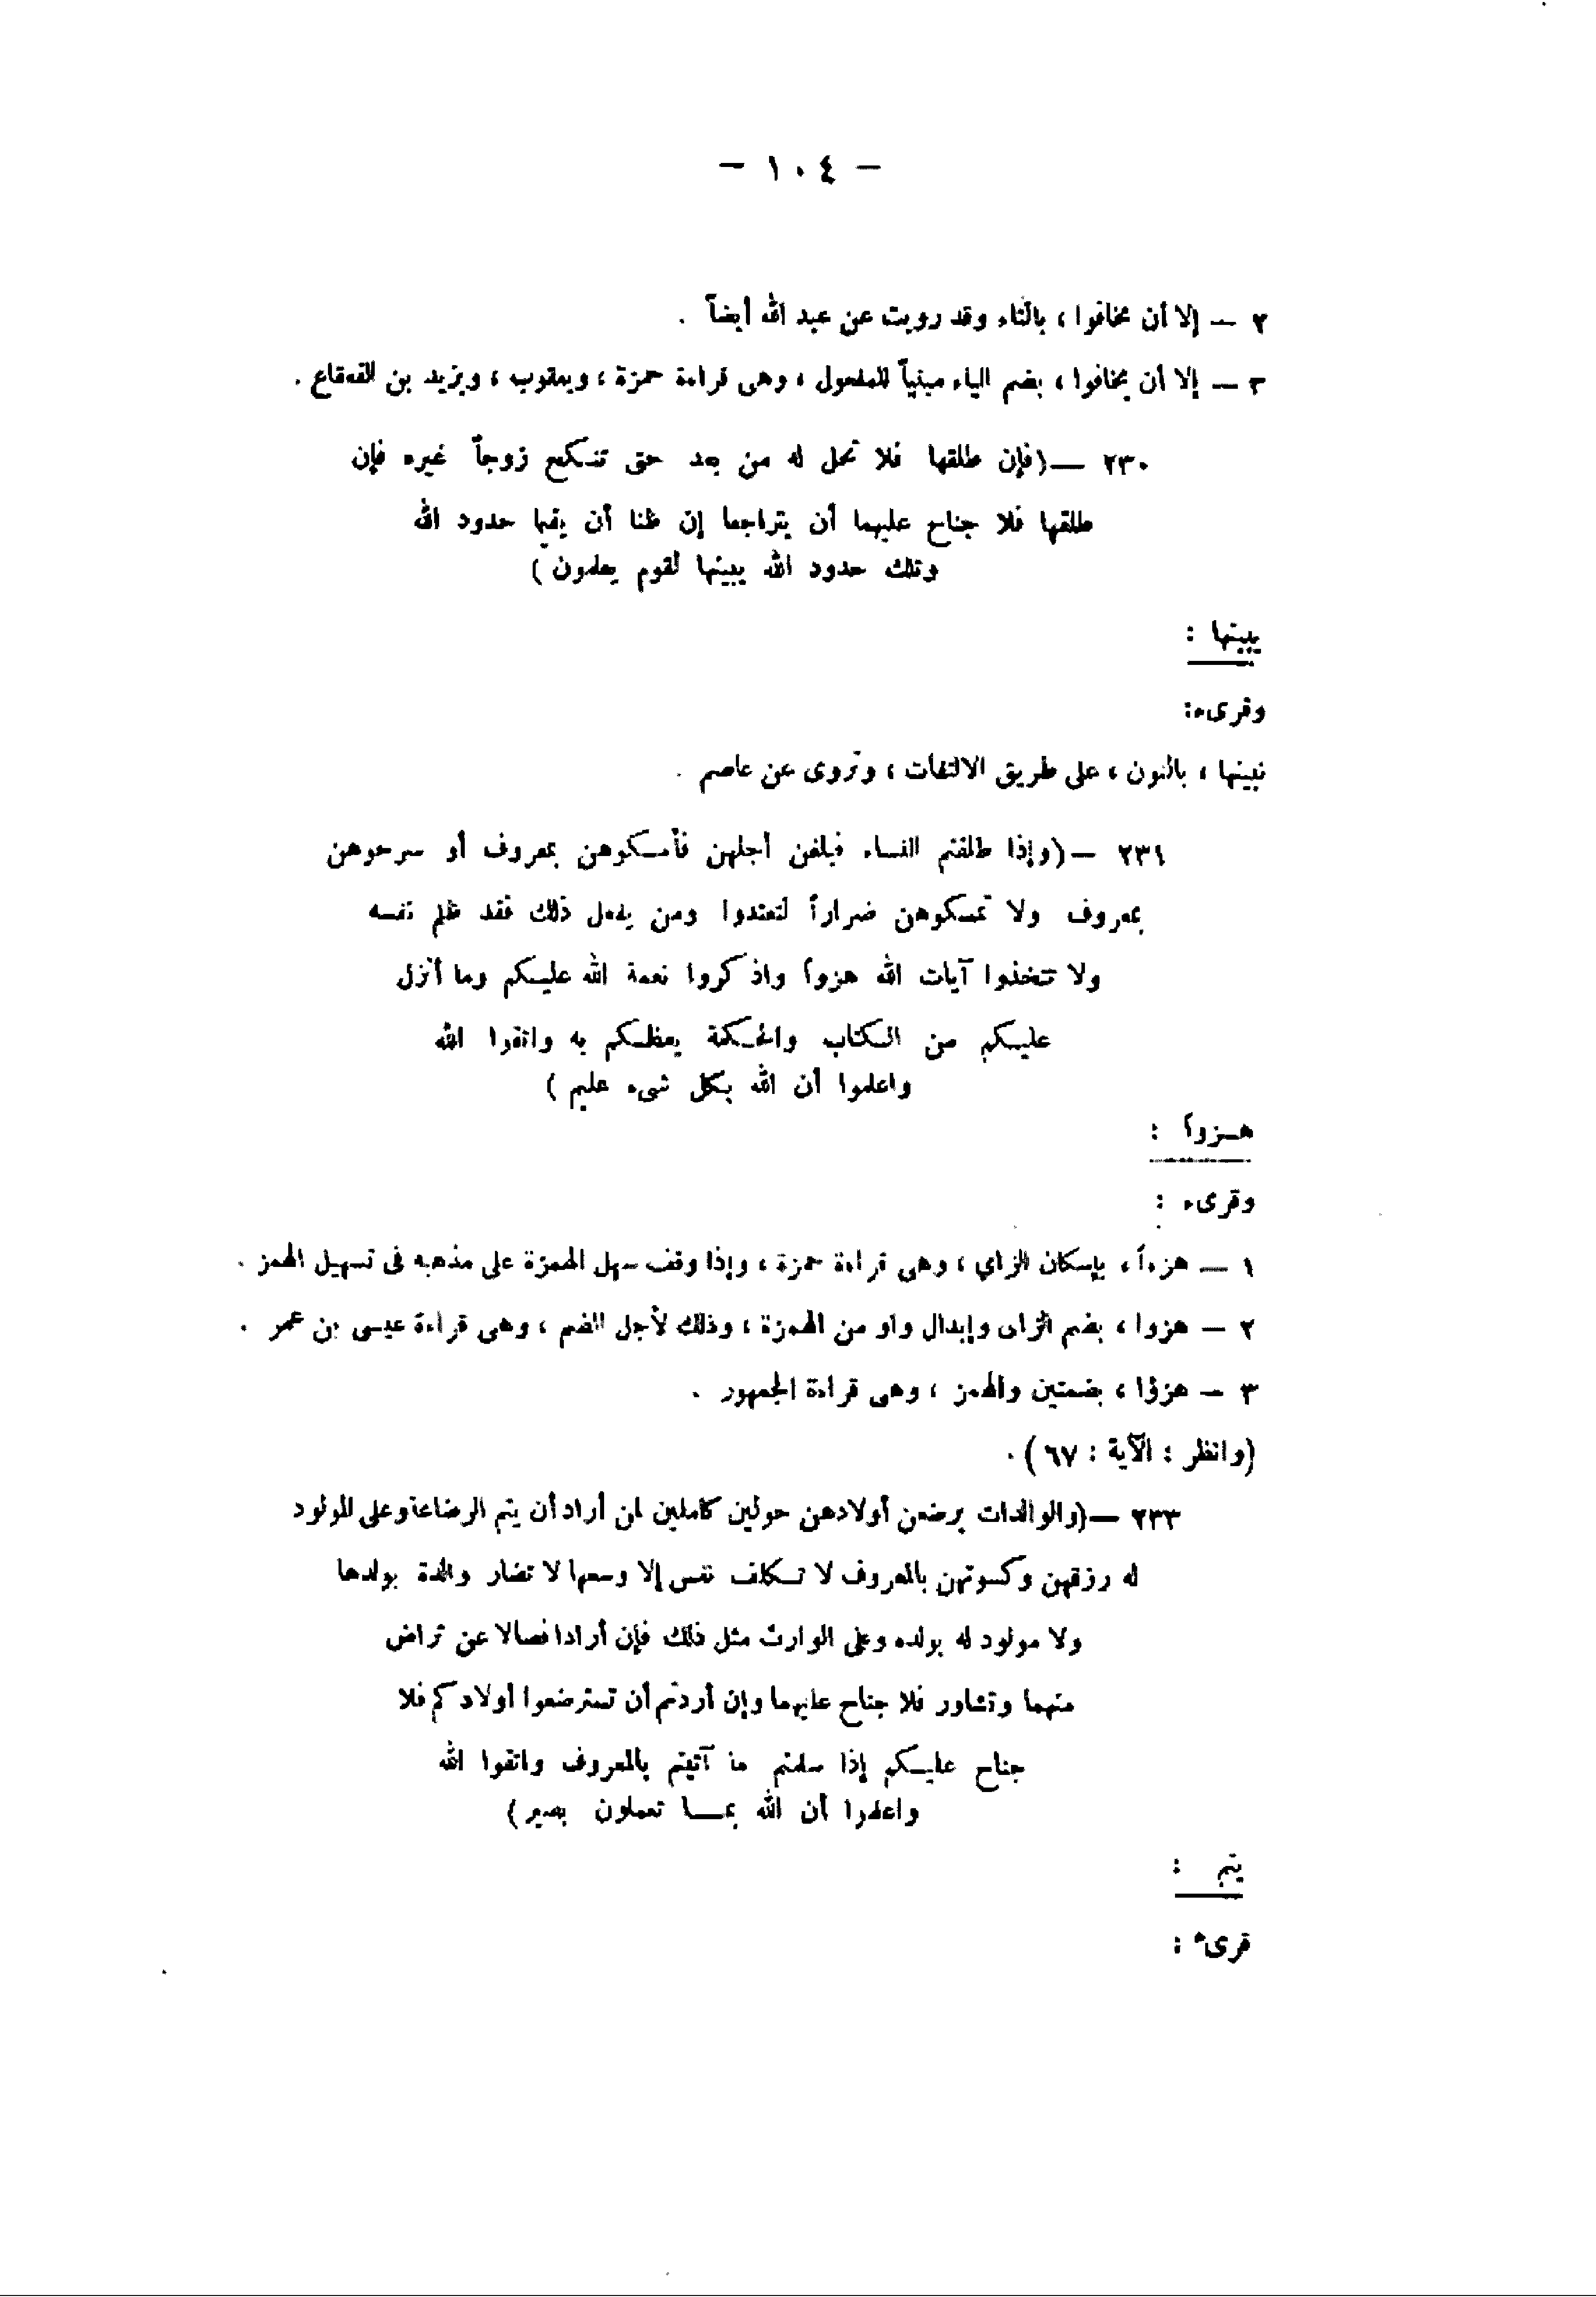 — ١٠٤ —
٢ — إلا أن تخافوا ، بالتاء وقد رويت عن عبد الله أيضاً .
٣ — إلا أن يخافوا ، بضم الياء مبنياً للمفعول ، وهى قراءة حمزة ، ويعقوب ، ويزيد بن القعقاع .
٢٣٠ — (فإن طلقها فلا تحل له من بعد حتى تنكح زوجاً غيره فإن
طلقها فلا جناح عليهما أن يتراجعا إن ظنا أن يقيما حدود الله
وتلك حدود الله يبينها لقوم يعلمون )
يبينها :
وقرىء:
نبينها ، بالنون ، على طريق الالتفات ، وتروى عن عاصم .
٢٣١ — (وإذا طلقتم النساء فبلغن أجلهن فأمسكوهن بمعروف أو سرحوهن
بمعروف ولا تمسكوهن ضراراً لتعتدوا ومن يفعل ذلك فقد ظلم نفسه
ولا تتخذوا آيات الله هزواً واذكروا نعمة الله عليكم وما أنزل
عليكم من الكتاب والحكمة يعظكم به واتقوا الله
واعلموا أن الله بكل شىء عليم )
هزواً :
وقرىء :
١ — هزءاً ، بإسكان الزاي ، وهى قراءة حمزة ، وإذا وقف سهل الهمزة على مذهبه فى تسهيل الهمز .
٢ — هزوا ، بضم الزاى وإبدال واو من الهمزة ، وذلك لأجل الضم ، وهى قراءة عيسى بن عمر .
٣ — هزؤا ، بضمتين والهمز ، وهى قراءة الجمهور .
(وانظر : الآية : ٦٧) .
٢٣٣ — (والوالدات يرضعن أولادهن حولين كاملين لمن أراد أن يتم الرضاعة وعلى المولود
له رزقهن وكسوتهن بالمعروف لا تكلف نفس إلا وسعها لا تضار والدة بولدها
ولا مولود له بولده وعلى الوارث مثل ذلك فإن أرادا فصالا عن تراض
منهما وتشاور فلا جناح عليهما وإن أردتم أن تسترضعوا أولادكم فلا
جناح عليكم إذا سلمتم ما آتيتم بالمعروف واتقوا الله
واعلموا أن الله بما تعملون بصير)
يتم :
قرىء :